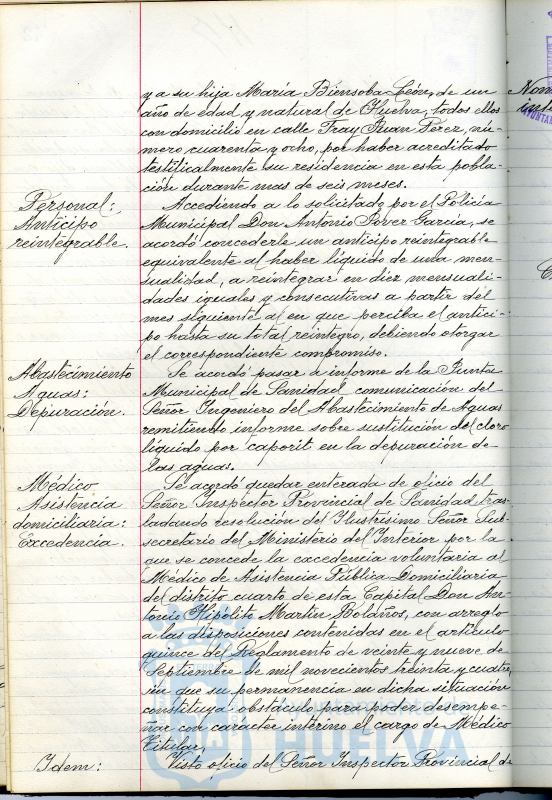 y a su hija María Biensoba León, de un
año de edad, y natural de Huelva, todos ellos
con domicilio en calle Fray Juan Perez, nú-
mero cuarenta y ocho, por haber acreditado
testificalmente su residencia en esta pobla-
ción durante mas de seis meses.
Personal:
Anticipo
reintegrable.
Accediendo a lo solicitado por el Policia
Municipal Don Antonio Pover Garcia, se
acordó concederle un anticipo reintegrable
equivalente al haber líquido de una men-
sualidad, a reintegrar en diez mensuali-
dades iguales y consecutivas a partir del
mes siguiente al en que perciba el antici-
po hasta su total reintegro, debiendo otorgar
el correspondiente compromiso.
Abastecimiento
Aguas:
Depuración.
Se acordó pasar a informe de la Junta
Municipal de Sanidad comunicación del
Señor Ingeniero del Abastecimiento de Aguas
remitiendo informe sobre sustitución del cloro
líquido por caporit en la depuración de
las aguas.
Médico
Asistencia
domiciliaria:
Excedencia.
Se acordó quedar enterada de oficio del
Señor Inspector Provincial de Sanidad tras-
ladando resolución del Ilustrísimo Señor Sub-
secretario del Ministerio del Interior por la
que se concede la excedencia voluntaria al
Médico de Asistencia Pública Domiciliaria
del distrito cuarto de esta Capital Don An-
tonio Hipolito Martin Bolaños, con arreglo
a las disposiciones contenidas en el artículo
quince del Reglamento de veinte y nueve de
Septiembre de mil novecientos treinta y cuatro,
sin que su permanencia en dicha situación
constituya obstáculo para poder desempe-
ñar con caracter interino el cargo de Médico
Titular.
Idem:
Visto oficio del Señor Inspector Provincial de
HUELVA